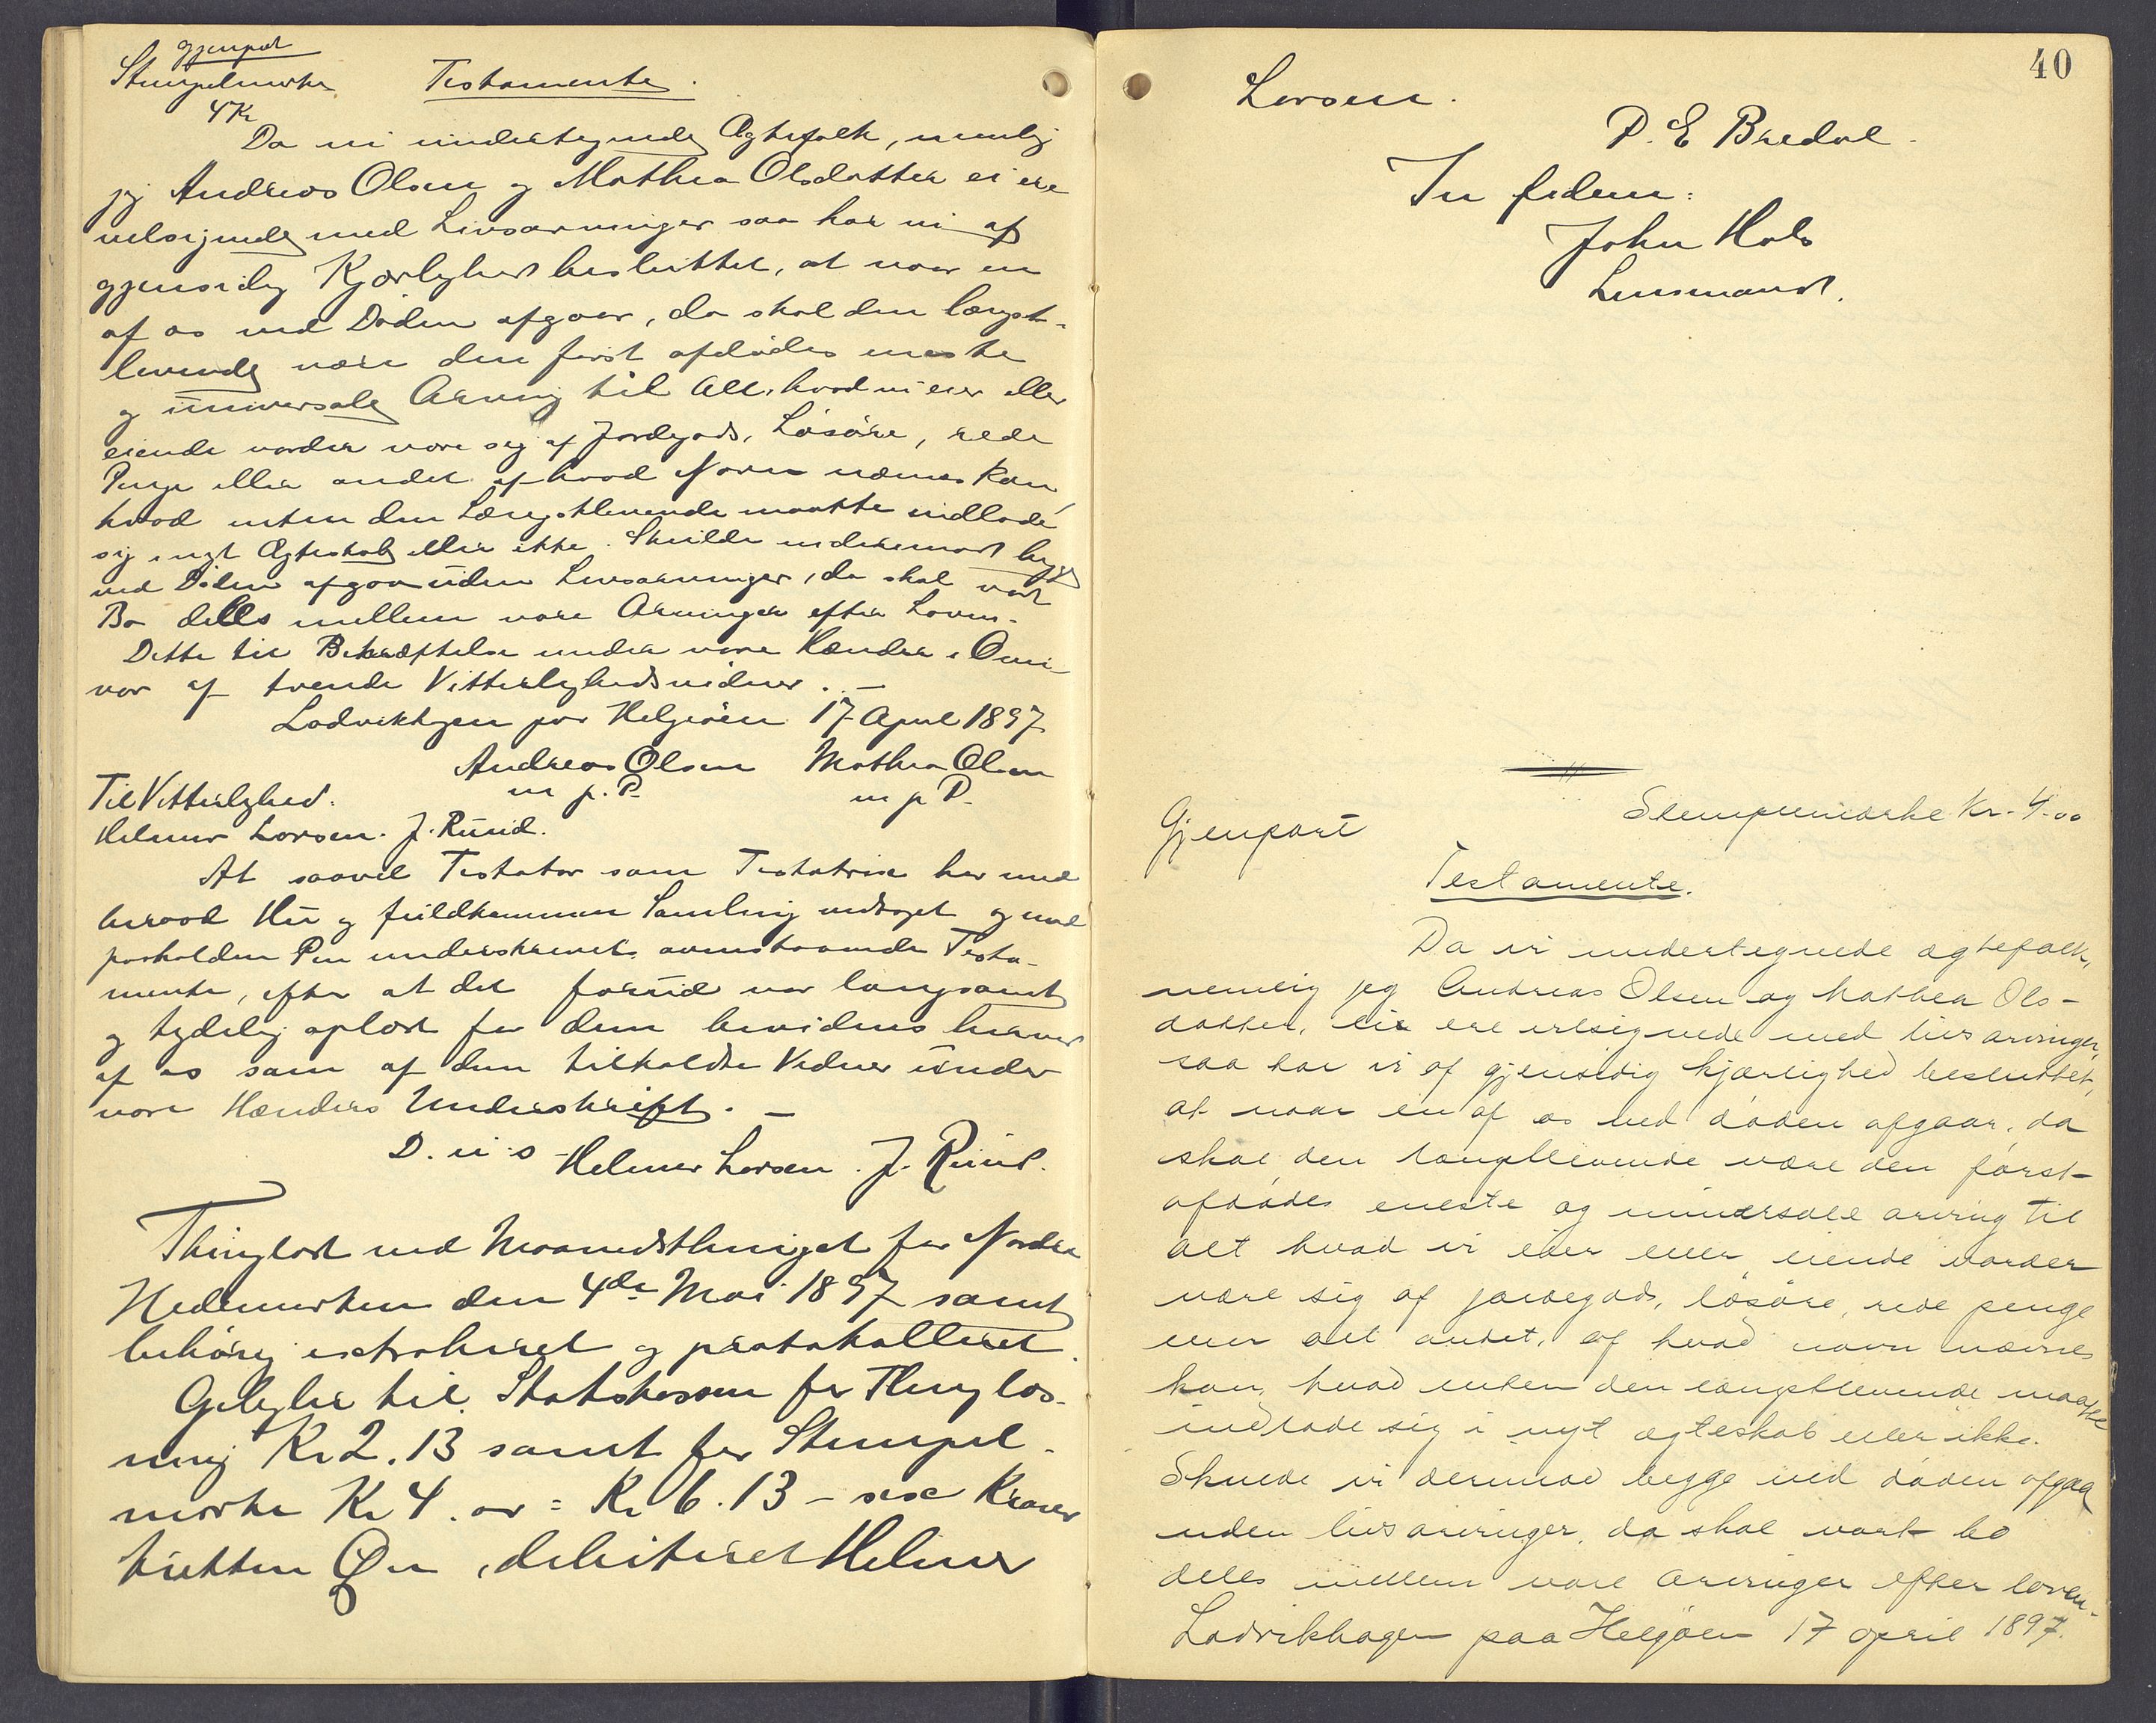 gjenpart
Stempelmærke Testamente.
4 Kr
Da vi undertegnede Ægtefolk, nemlig
jeg Andreas Olsen og Mathea Olsdatter ei ere
velsignede med Livsarvinger saa har vi af
gjensidig Kjærlighed besluttet, at naar en
af os ved Døden afgaar, da skal den længst-
levende være den først afdødes eneste
og universale Arving til Alt, hvad vi eier eller
eiende vorder være sig af Jordegods, Løsøre, rede
Penge eller andet af hvad Navn nævnes kan,
hvad enten den Længstlevende maatte indlade
sig i nyt Ægteskab eller ikke. Skulde vi derimod begge
ved Døden afgaa uden Livsarvinger, da skal vort
Bo deles mellem vore Arvinger efter Loven.
Dette til Bekræftelse under vore Hænder i Over-
vær af tvende Vitterlighedsvidner. –
Ladvikhagen paa Helgøen 17 April 1897
Andreas Olsen Mathea Olsen
m p. P. m p P.
Til Vitterlighed.
Helmer Larsen. J. Ruud.
At saavel Testator som Testatrix har med
beraad Hu og fuldkommen Samling vedtaget og med
paaholden Pen underskrevet ovenstaaende Testa-
mente, efter at det forud var langsomt
og tydelig oplæst for dem bevidnes herved
af os som af dem tilkaldte Vidner under
vore Hænders Underskrift. –
D. u. s Helmer Larsen. J. Ruud.
Thinglæst ved Maanedsthinget for Nordre
Hedemarken den 4de Mai 1897 samt
behørig extraheret og protokolleret.
Gebyhr til Statskassen for Thinglæs-
ning Kr 2.13 samt for Stempel-
mærke Kr 4.00 = Kr 6.13 – sex Kroner
tretten Øre, debiteret Helmer
40
Larsen.
P. E Bredal.
In fidem:
John Hals
Lensmand.
Stempelmærke Kr. 4.00
Gjenpart
Testamente.
Da vi undertegnede ægtefolk,
nemlig jeg Andreas Olsen og Mathea Ols-
datter, ei ere velsignede med livsarvinger,
saa har vi af gjensidig kjærlighed besluttet,
at naar en af os ved døden afgaar, da
skal den længstlevende være den først-
afdødes eneste og universale arving til
alt hvad vi eier eller eiende vorder
være sig af jordegods, løsøre, rede penge
eller alt andet, af hvad navn nævnes
kan, hvad enten den længstlevende maatte
indlade sig i nyt ægteskab eller ikke.
Skulde vi derimod begge ved døden afgaa
uden livsarvinger, da skal vort bo
deles mellem vore arvinger efter loven.
Ladvikhagen paa Helgøen 17 april 1897.